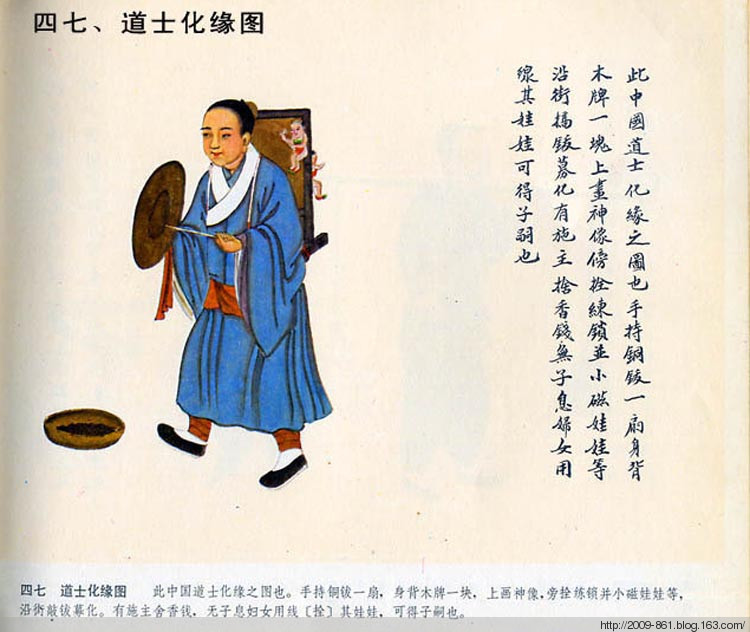 四七、道士化缘图
此中國道士化緣之圖也手持銅鈸一扇身背
木牌一塊上畫神像傍拴練鎖並小磁娃娃等
沿街搞鈸募化有施主捨香錢無子息婦女用
線其娃娃可得子嗣也
四七 道士化缘图 此中国道士化缘之图也。手持铜钹一扇，身背木牌一块，上画神像，旁拴练锁并小磁娃娃等，
沿街敲钹募化。有施主舍香钱，无子息妇女用线〔拴〕其娃娃，可得子嗣也。
http://2009-861.blog.163.com/